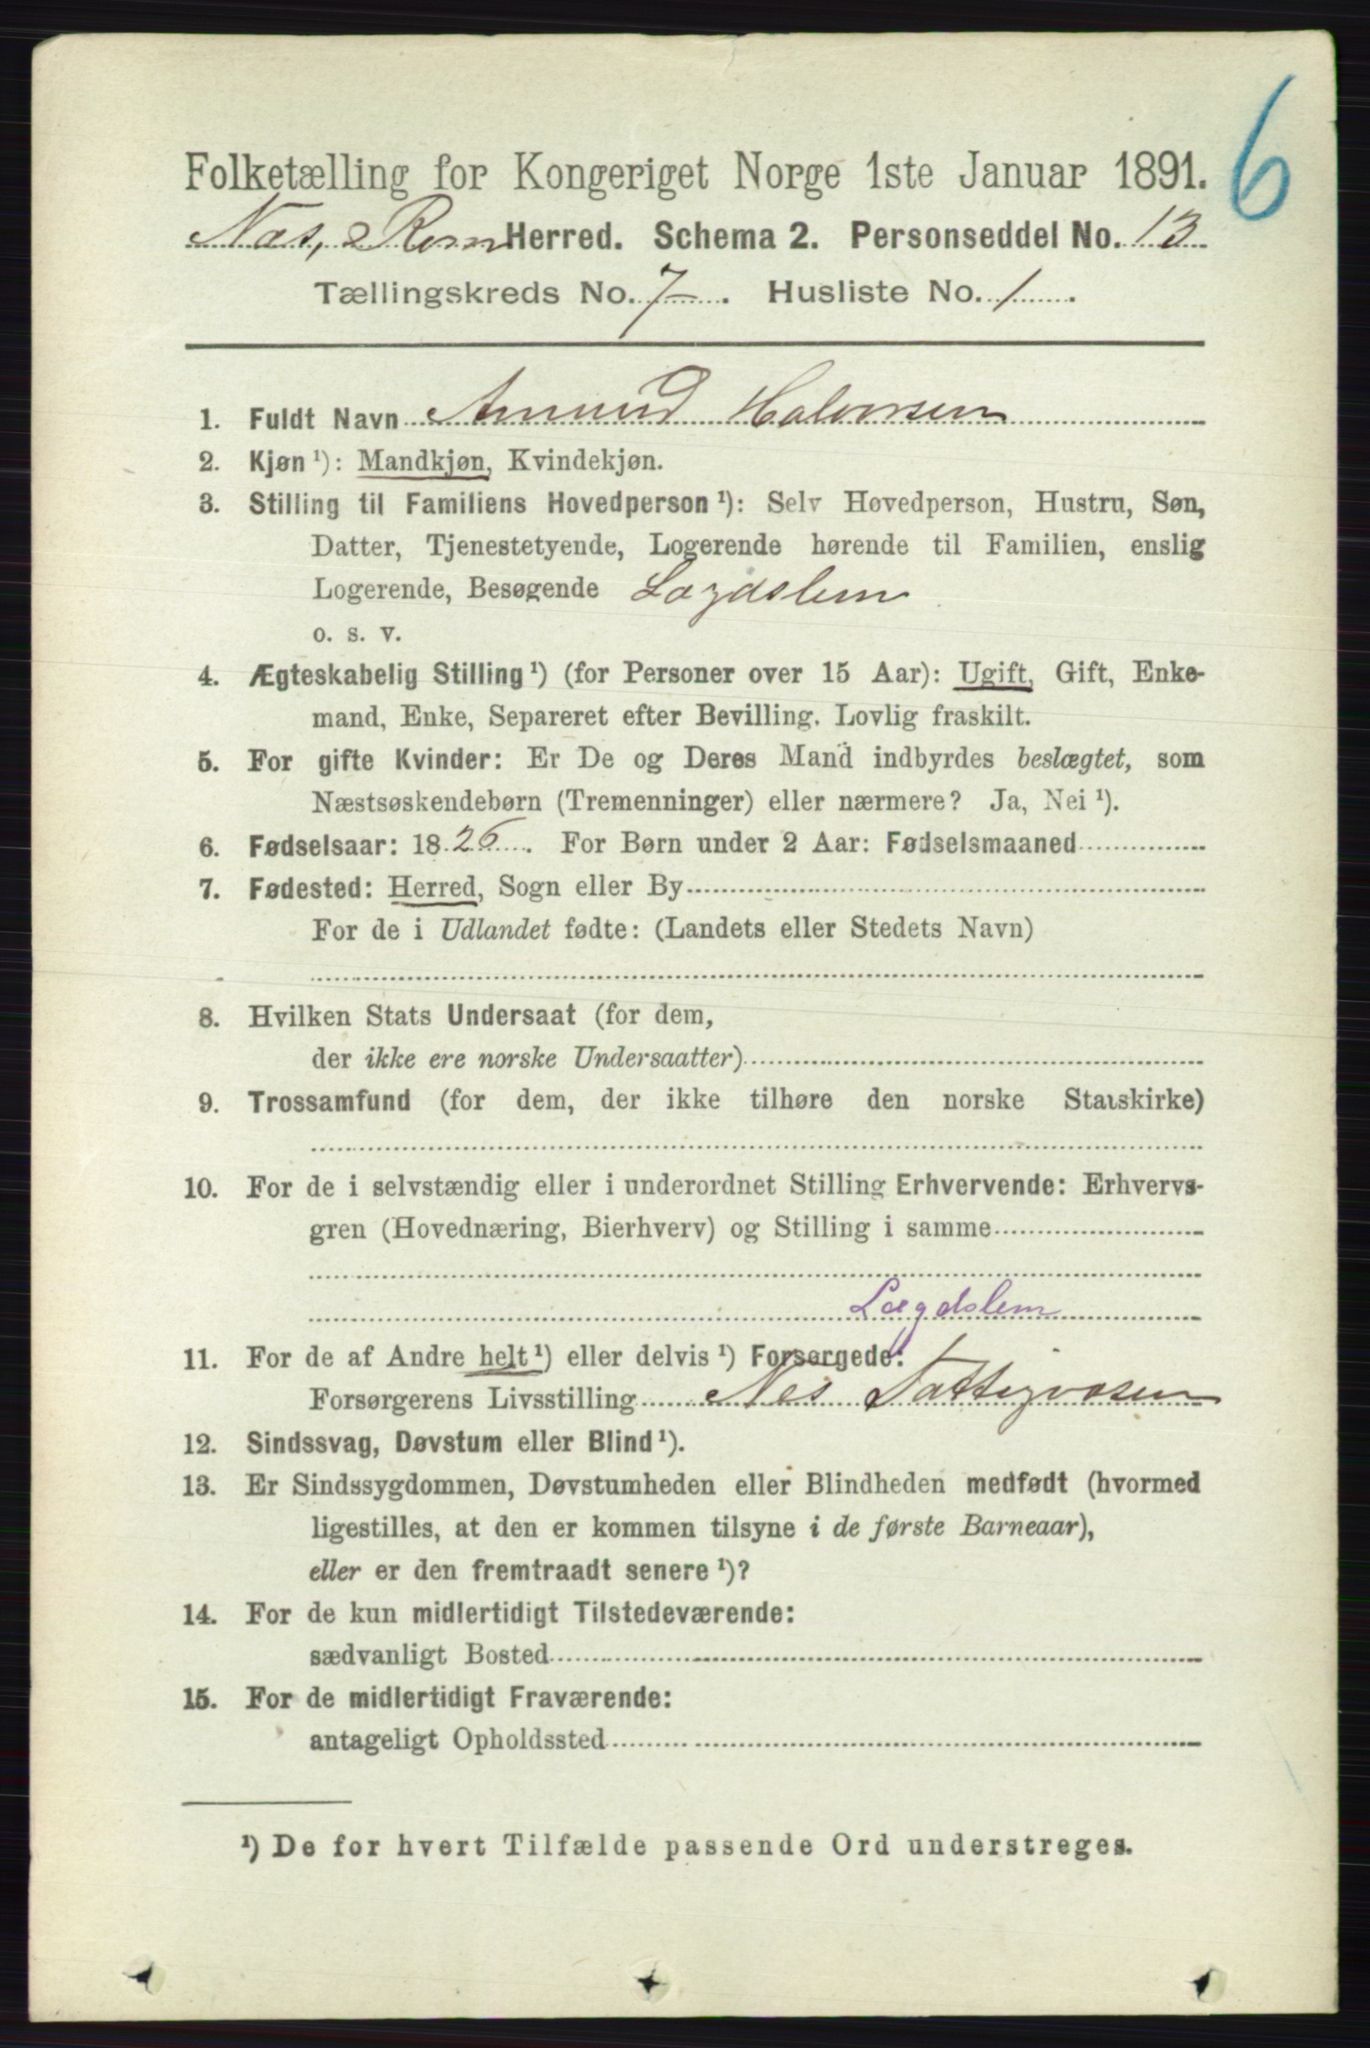 6
Folketælling for Kongeriget Norge 1ste Januar 1891.
Nes, Rom Herred. Schema 2. Personseddel No. 13
Tællingskreds No. 7. Husliste No. 1.
1. Fuldt Navn Amund Halvorsen
2. Kjøn ¹): Mandkjøn, Kvindekjøn.
3. Stilling til Familiens Hovedperson ¹): Selv Hovedperson, Hustru, Søn,
Datter, Tjenestetyende, Logerende hørende til Familien, enslig
Logerende, Besøgende Lægdslem
o. s. v.
4. Ægteskabelig Stilling ¹) (for Personer over 15 Aar): Ugift, Gift, Enke-
mand, Enke, Separeret efter Bevilling. Lovlig fraskilt.
5. For gifte Kvinder: Er De og Deres Mand indbyrdes beslægtet, som
Næstsøskendebørn (Tremenninger) eller nærmere? Ja, Nei ¹).
6. Fødselsaar: 1826. For Børn under 2 Aar: Fødselsmaaned
7. Fødested: Herred, Sogn eller By
For de i Udlandet fødte: (Landets eller Stedets Navn)
8. Hvilken Stats Undersaat (for dem,
der ikke ere norske Undersaatter)
9. Trossamfund (for dem, der ikke tilhøre den norske Statskirke)
10. For de i selvstændig eller i underordnet Stilling Erhvervende: Erhvervs-
gren (Hovednæring, Bierhverv) og Stilling i samme
Lægdslem
11. For de af Andre helt ¹) eller delvis ¹) Forsørgede:
Forsørgerens Livsstilling Nes Fattigvæsen
12. Sindssvag, Døvstum eller Blind ¹).
13. Er Sindssygdommen, Døvstumheden eller Blindheden medfødt (hvormed
ligestilles, at den er kommen tilsyne i de første Barneaar),
eller er den fremtraadt senere ¹)?
14. For de kun midlertidigt Tilstedeværende:
sædvanligt Bosted
15. For de midlertidigt Fraværende:
antageligt Opholdssted
¹) De for hvert Tilfælde passende Ord understreges.